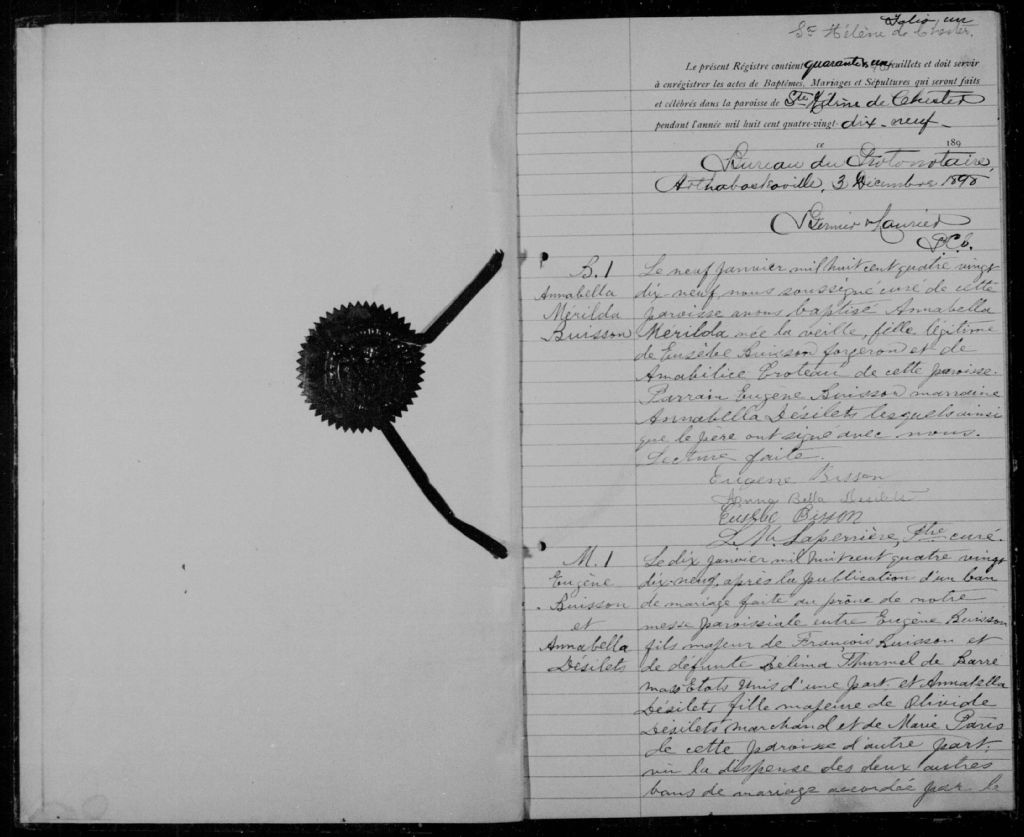 Folio, un
Ste Hélène de Chester.
Le présent Régistre contient quarante un feuillets et doit servir
à enrégistrer les actes de Baptêmes, Mariages et Sépultures qui seront faits
et célébrés dans la paroisse de Ste Hélène de Chester
pendant l'année mil huit cent quatre-vingt- dix-neuf-
ce 189
Bureau du Protonotaire,
Arthabaskaville, 3 Décembre 1898
Bernier & Laurier
P.C.S.
B. 1
Annabella
Mérilda
Buisson
Le neuf janvier mil huit cent quatre vingt
dix neuf nous soussigné curé de cette
paroisse avons baptisé Annabella
Mérilda née la veille, fille légitime
de Eusèbe Buisson forgeron et de
Amabilice Croteau de cette paroisse.
Parrain Eugène Buisson marraine
Annabella Désilets lesquels ainsi
que le père ont signé avec nous.
Lecture faite.
Eugène Bisson
Anna Bella Desilets
Eusèbe Bisson
L. N. Laperrière, Ptre curé.
M. 1
Eugène
Buisson
et
Annabella
Désilets
Le dix janvier mil huit cent quatre vingt
dix-neuf, après la publication d'un ban
de mariage faite au prône de notre
messe paroissiale entre Eugène Buisson
fils majeur de François Buisson et
de défunte Délima Thurmel de Barré
mass Etats Unis d'une part, et Annabella
Désilets fille majeure de Olivide
Désilets marchand et de Marie Paris
de cette paroisse d'autre part;
vu la dispense des deux autres
bans de mariage accordée par le